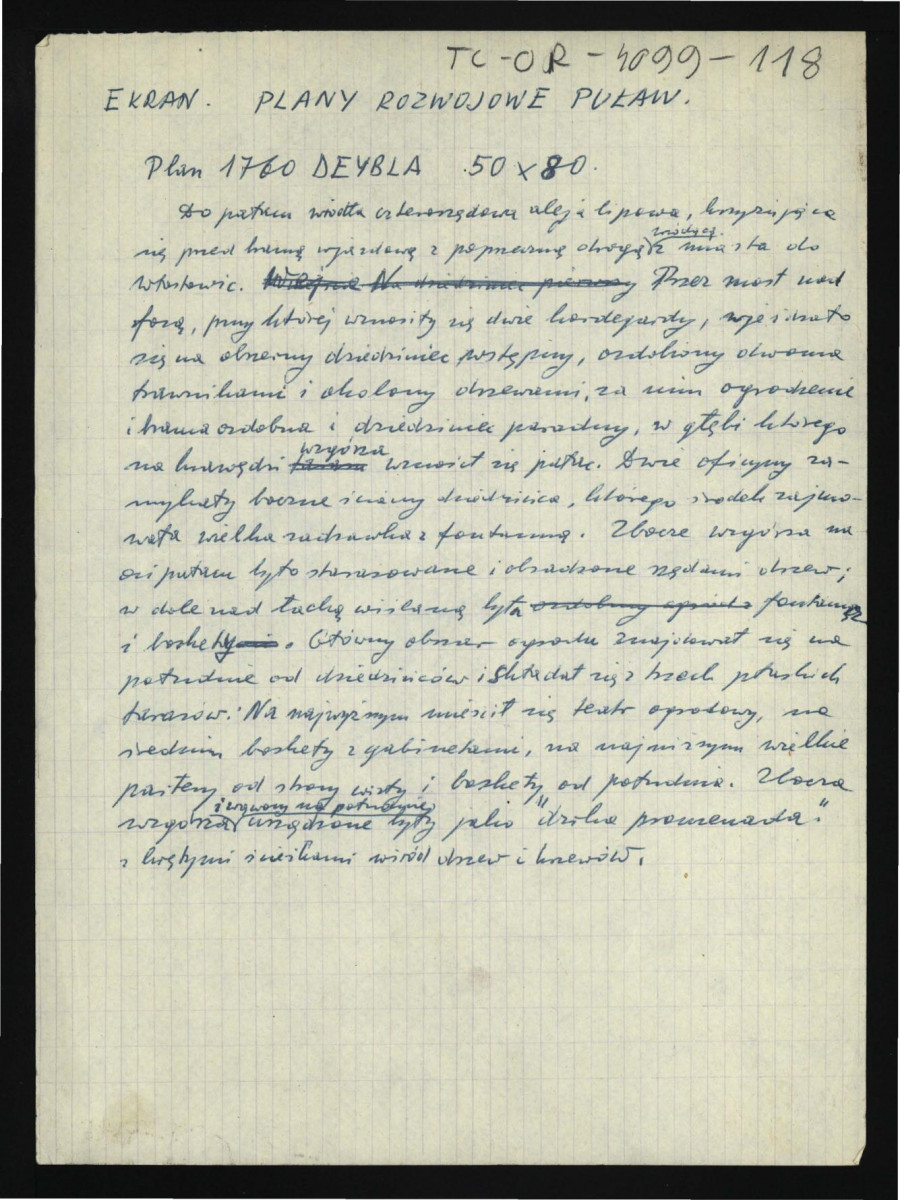 TC-OR-4099-118
EKRAN. PLANY ROZWOJOWE PUŁAW.
Plan 1760 DEYBLA 50 x 80.
Do pałacu wiodła czterorzędowa aleja lipowa, krzyżująca
się przed bramą wyjazdową z poprzeczną drogą wiodącą z miasta do
Włostowic. Na dziedziniec pierwszy Przez most nad
fosą, przy której wznosiły się dwie kordegardy, wjeżdżało
się na obszerny dziedziniec wstępny, ozdobiony dwoma
trawnikami i okolony drzewami, za nim ogrodzenie
i brama ozdobna i dziedziniec paradny, w głębi którego
na krawędzi tarasu wzgórza wznosił się pałac. Dwie oficyny za-
mykały boczne ściany dziedzińca, którego środek zajmo-
wała wielka sadzawka z fontanną. Zbocze wzgórza na
osi pałacu było starasowane i obsadzone rzędami drzew;
w dole nad łachą wiślaną była ozdobny ogród z fontanną
i boskety. Główny obszar ogrodu znajdował się na
południe od dziedzińców i składał się z trzech płaskich
tarasów: Na najwyższym mieścił się teatr ogrodowy, na
średnim boskety z gabinetami, na najniższym wielkie
partery od strony Wisły i boskety od południa. Zbocza
wzgórza i wąwozy na południe urządzone były jako "dzika promenada"
z krętymi ścieżkami wśród drzew i krzewów.